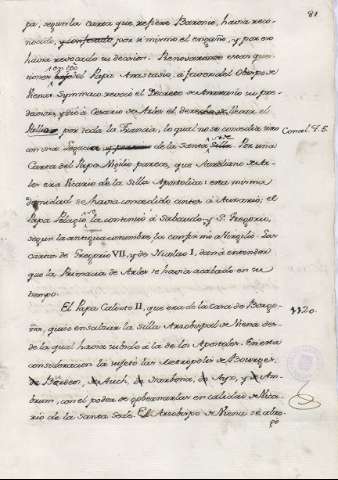 81
pa, segun la carta que refiere Baronio, havia reco-
nocido, y confesado por si mismo el engaño, y por eso
havia revocado su decision. Renovaronse estas que-
stiones en tpo del Papa Anastasio, à favor del Obispo de
Viena. Symmaco revocó el Decreto de Anastasio su pre-
decesor, y dió à Cesario de Arles el derecho de llevar el
Pallio por toda la Francia, lo qual no se concedia sino
con una de la Santa Silla. Por una
Concil. T. 5.
Carta del Papa Vigilio parece, que Aureliano de Ar-
les era Vicario de la Silla Apostolica: esta misma
dignidad se havia concedido antes à Auxanio; el
Papa Pelagio la continuó à Sabaudo, y S. Gregorio,
segun la antigua costumbre, la confirmó à Vergilio. Las
cartas de Gregorio VII, y de Nicolas I, dan à entender
que la Primacia de Arles se havia acabado en su
tiempo.
El Papa Calixto II, que era de la Casa de Borgo-
1120.
ña, quiso ensalzar la Silla Arzobispal de Viena des-
de la qual havia subido à la de los Apostoles. En esta
consideracion la sujetó las Metropolis de Bourges,
de Burdeos, de Auch, de Narbona, de Aix, y de Am-
brum, con el poder de gobernarlas en calidad de Vica-
rio de la Santa Sede. El Arzobispo de Viena se atro-
po